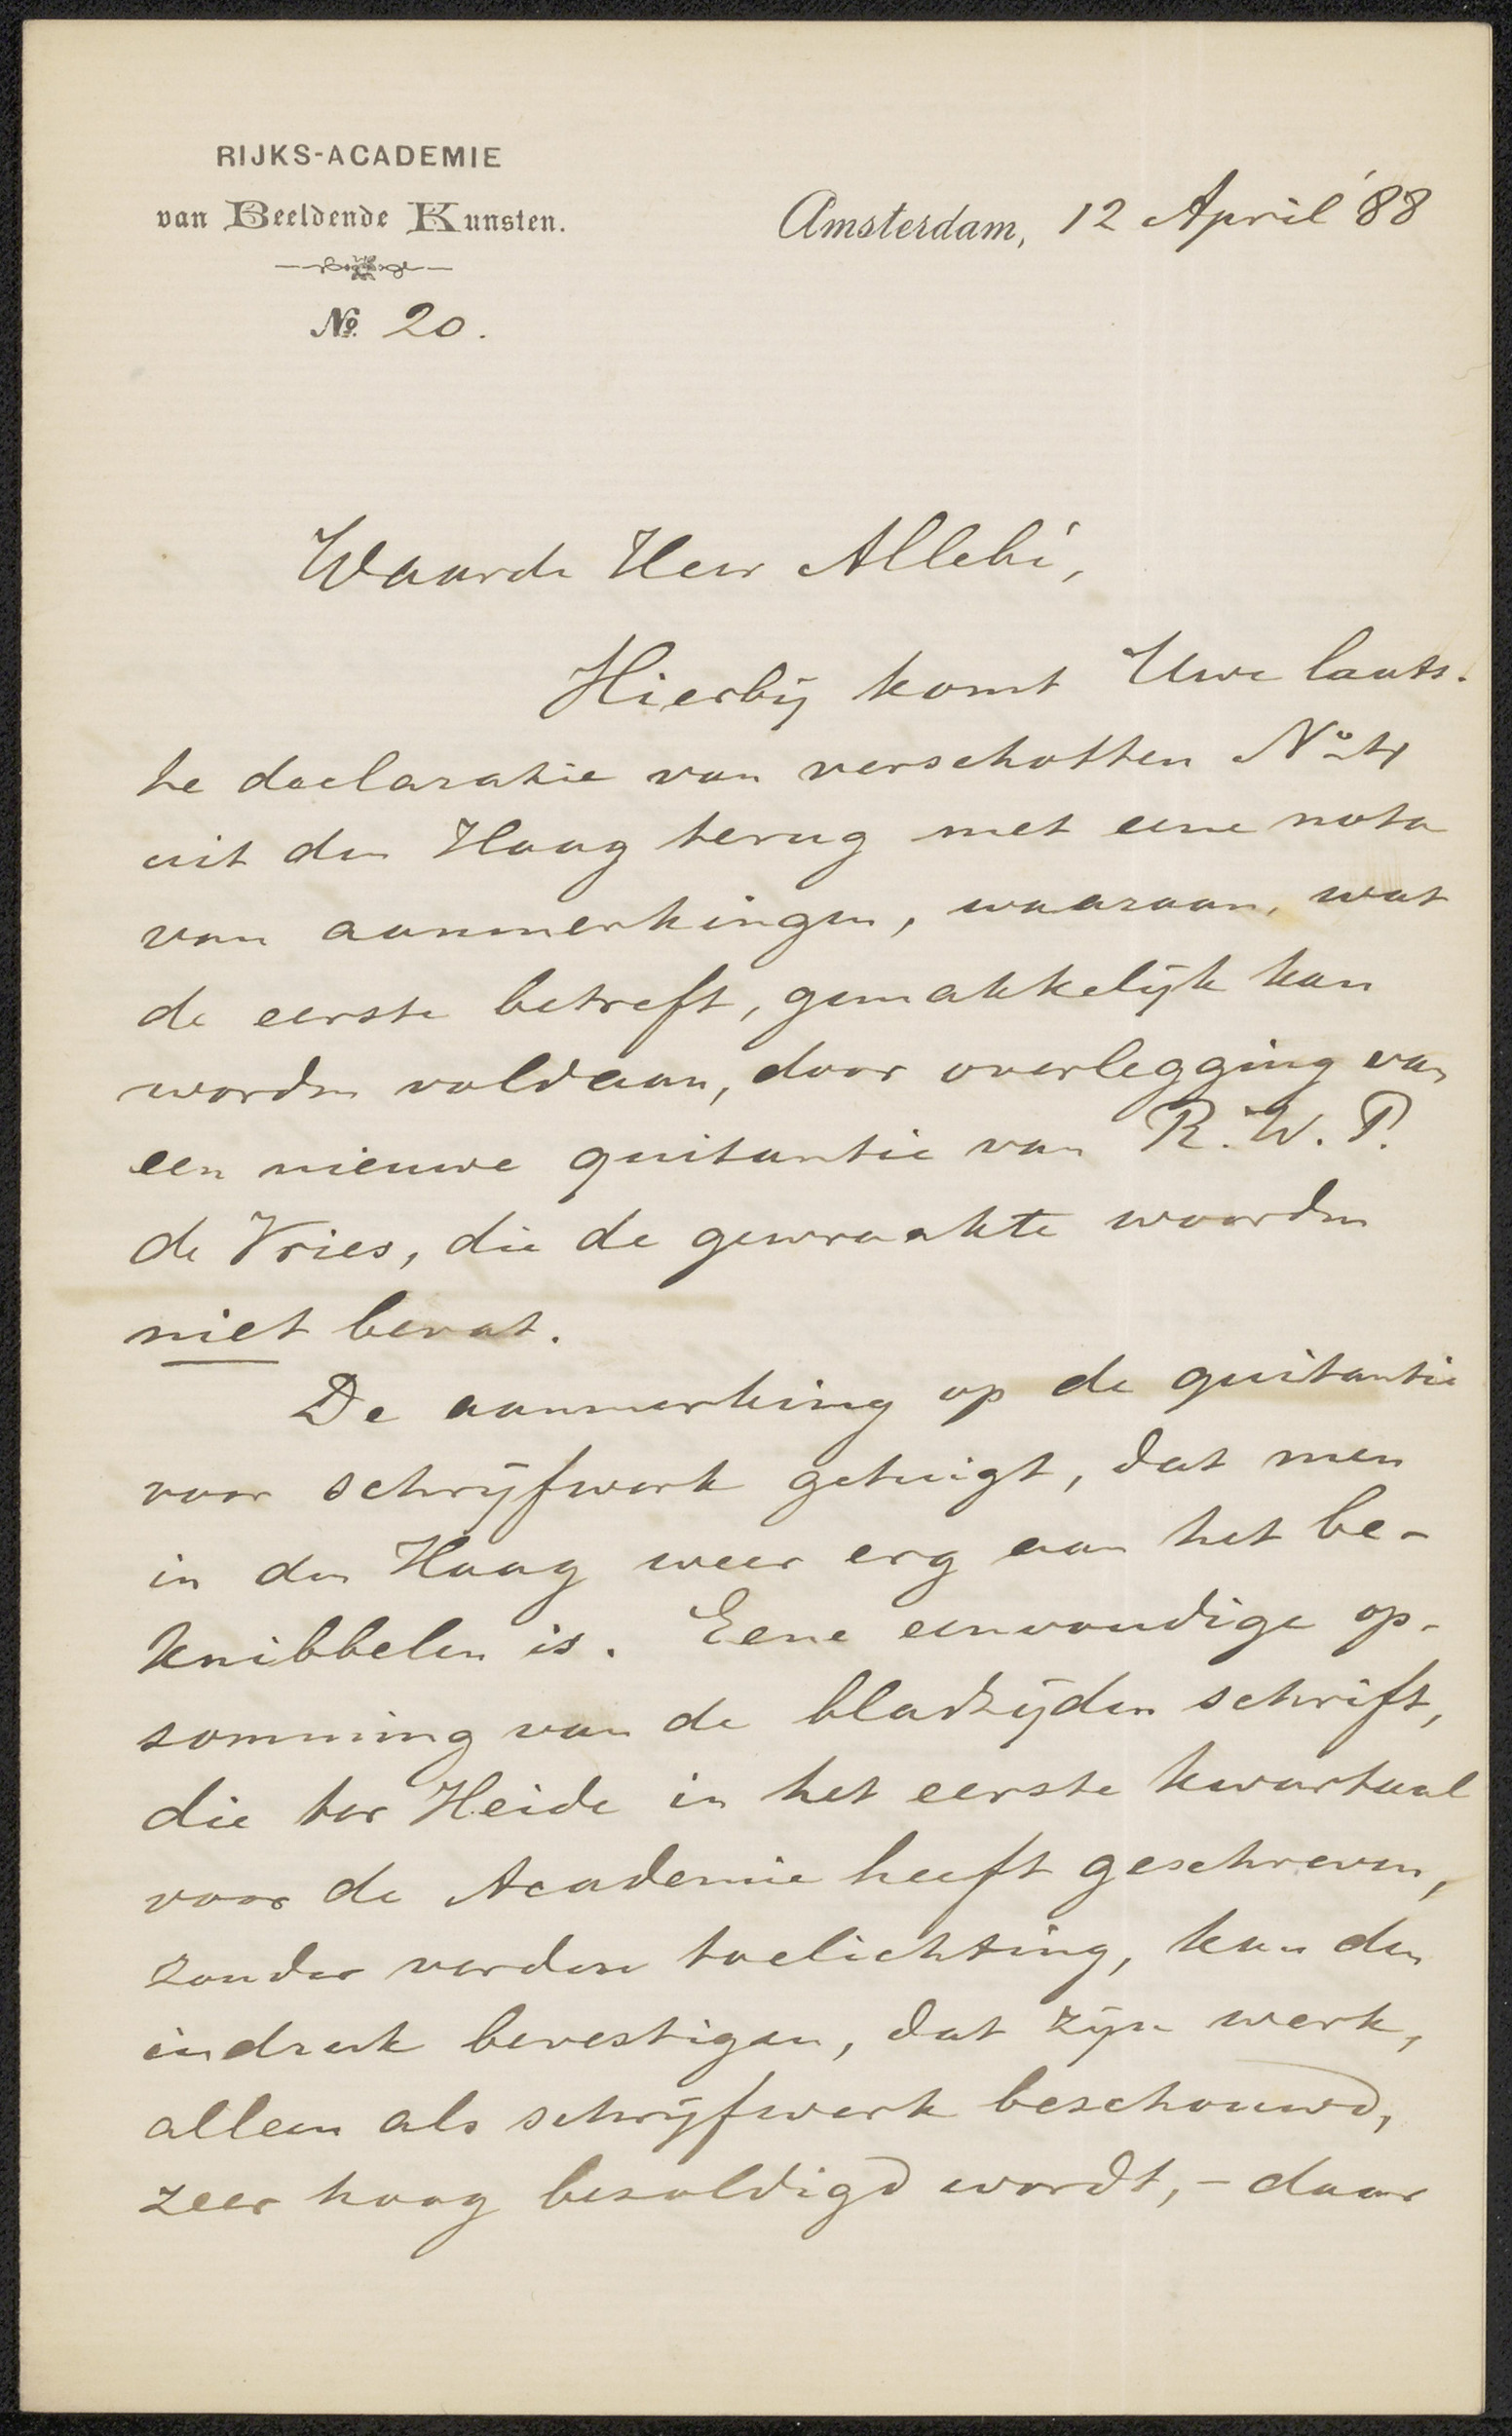 RIJKS-ACADEMIE
van Beeldende Kunsten.
Amsterdam, 12 April '88
No. 20.
Waarde Heer Allebé,
Hierbij komt Uwe laats-
te declaratie van verschotten No 4
uit den Haag terug met eene nota
van aanmerkingen, waaraan, wat
de eerste betreft, gemakkelijk kan
worden voldaan, door overlegging van
een nieuwe quitantie van R. W. P.
de Vries, die de gewraakte woorden
niet bevat.
De aanmerking op de quitantie
voor schrijfwerk getuigt, dat men
in den Haag weer erg aan het be-
knibbelen is. Eene eenvoudige op-
somming van de bladzijden schrift,
die ter Heide in het eerste kwartaal
voor de Academie heeft geschreven,
zonder verdere toelichting, kan den
indruk bevestigen, dat zijn werk,
alleen als schrijfwerk beschouwd,
zeer hoog bezoldigd wordt, – daar